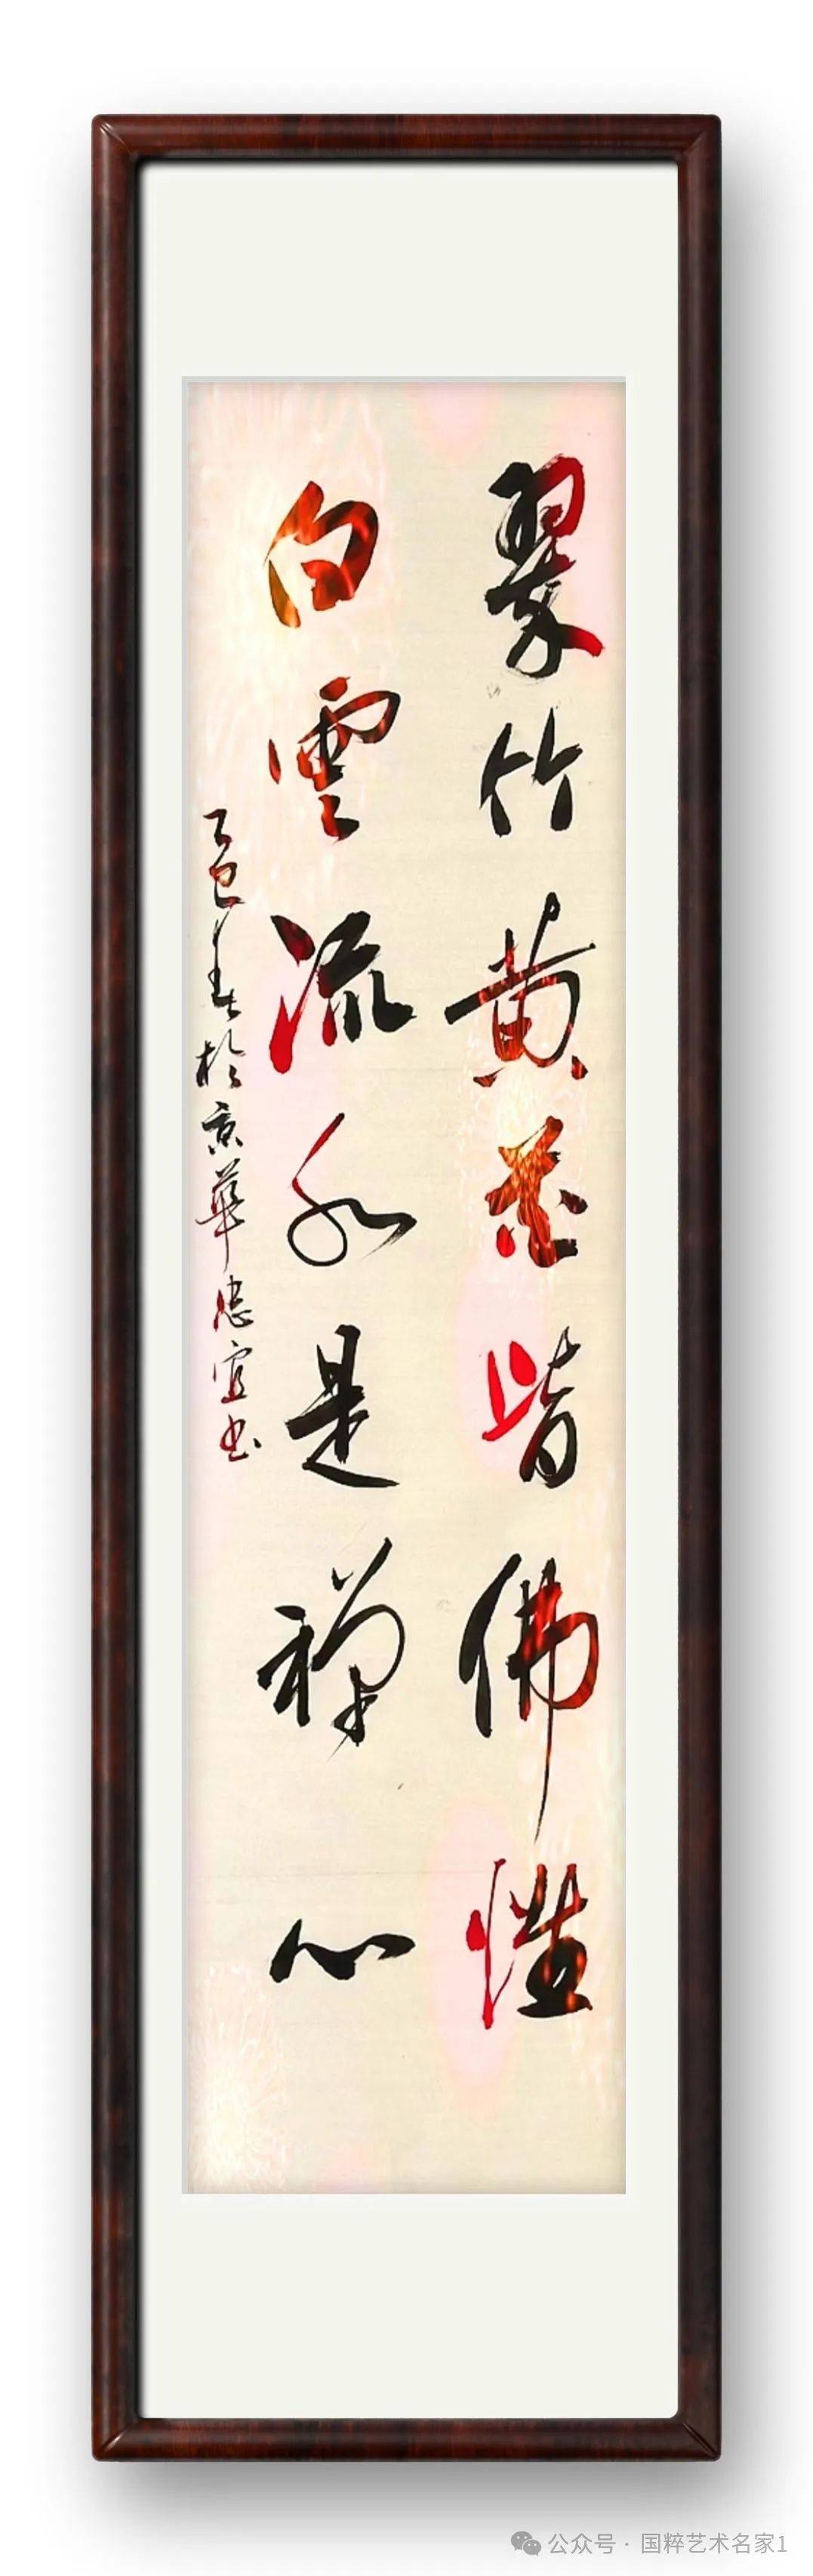 翠竹黄花皆佛性
白雲流水是禪心
乙巳春於京華忠宜书
公众号 · 国粹艺术名家1